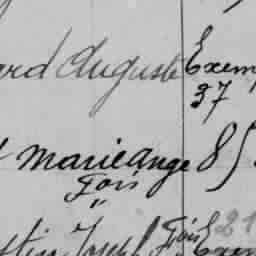 ard Auguste Exem
37
Marie Ange 85
Fois
"
stin Joseph Fois 21
Exem